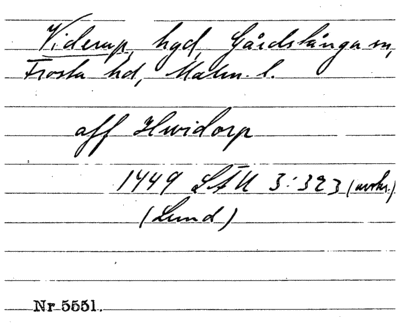 Viderup, hgd, Gårdstånga sn,
Frosta hd, Malm. l.
aff Hwidorp
1449 LÄU 3:323 (avskr.)
(Lund)
Nr 5551.